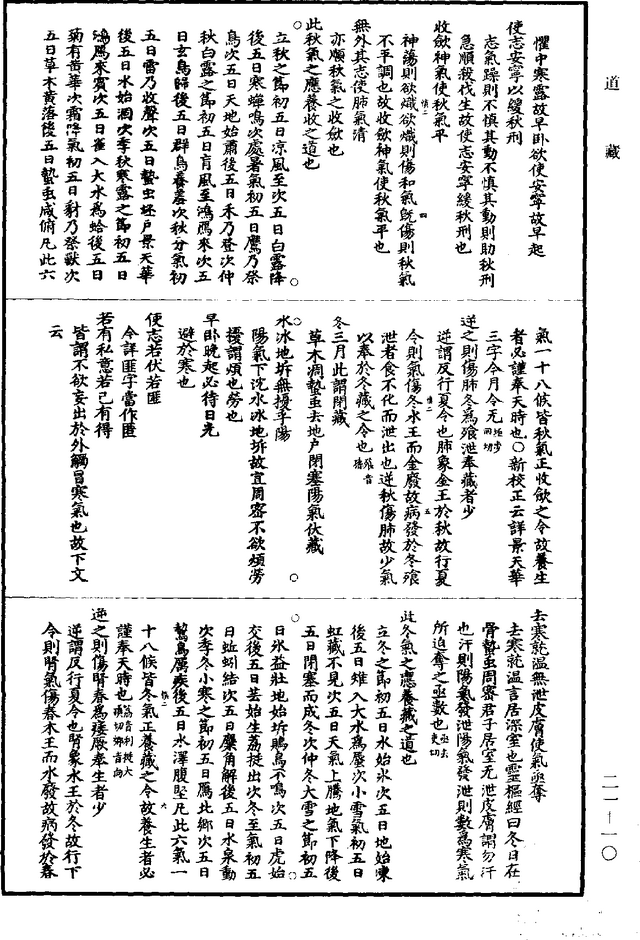 道藏
懼中寒露故早卧欲使安寧故早起
使志安寧以緩秋刑
志氣躁則不慎其動不慎其動則助秋刑
急順殺伐生故使志安寧緩秋刑也
收斂神氣使秋氣平
神蕩則欲熾欲熾則傷和氣既傷則秋氣
不平調也故收斂神氣使秋氣平也
無外其志使肺氣清
亦順秋氣之收斂也
此秋氣之應養收之道也
立秋之節初五日涼風至次五日白露降
後五日寒蟬鳴次處暑氣初五日鷹乃祭
鳥次五日天地始肅後五日禾乃登次仲
秋白露之節初五日盲風至鴻鴈來次五
日玄鳥歸後五日群鳥養羞次秋分氣初
五日雷乃收聲次五日蟄虫坯戶景天華
後五日水始涸次季秋寒露之節初五日
鴻鴈來賓次五日雀入大水為蛤後五日
菊有黃華次霜降氣初五日豺乃祭獸次
五日草木黃落後五日蟄虫咸俯凡此六
氣一十八候皆秋氣正收斂之令故養生
者必謹奉天時也○新校正云詳景天華
三字今月令无
逆之則傷肺冬為飧泄奉藏者少
逆謂反行夏令也肺象金王於秋故行夏
令則氣傷冬水王而金廢故病發於冬飧
泄者食不化而泄出也逆秋傷肺故少氣
以奉於冬藏之令也
冬三月此謂閉藏
草木凋蟄虫去地戶閉塞陽氣伏藏
水冰地坼無擾乎陽
陽氣下沈水冰地坼故宜周密不欲煩勞
擾謂煩也勞也
早卧晚起必待日光
避於寒也
使志若伏若匿
今詳匿字當作匪
若有私意若己有得
皆謂不欲妄出於外觸冒寒氣也故下文
云
去寒就溫無泄皮膚使氣亟奪
去寒就溫言居深室也靈樞經曰冬日在
骨蟄虫周密君子居室无泄皮膚謂勿汗
也汗則陽氣發泄陽氣發泄則數為寒氣
所迫奪之亟數也
此冬氣之應養藏之道也
立冬之節初五日水始氷次五日地始凍
後五日雉入大水為蜃次小雪氣初五日
虹藏不見次五日天氣上騰地氣下降後
五日閉塞而成冬次仲冬大雪之節初五
日氷益壯地始坼鶡鳥不鳴次五日虎始
交後五日芸始生荔挺出次冬至氣初五
日蚯蚓結次五日麋角解後五日水泉動
次季冬小寒之節初五日鴈北鄉次五日
鷙鳥厲疾後五日水澤腹堅凡此六氣一
十八候皆冬氣正養藏之令故養生者必
謹奉天時也
逆之則傷腎春為痿厥奉生者少
逆謂反行夏令也腎象水王於冬故行下
令則腎氣傷春木王而水廢故病發於春
二一-一〇